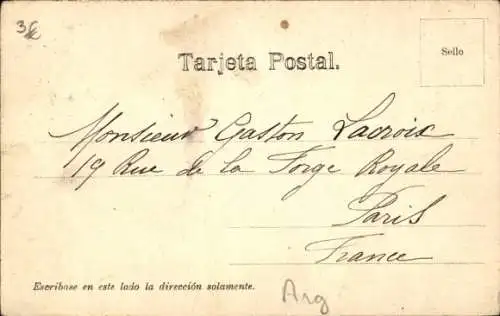 3£
Tarjeta Postal.
Sello
Monsieur Gaston Lacroix
19 Rue de la Forge Royale
Paris
France
Escríbase en este lado la dirección solamente.
Arg